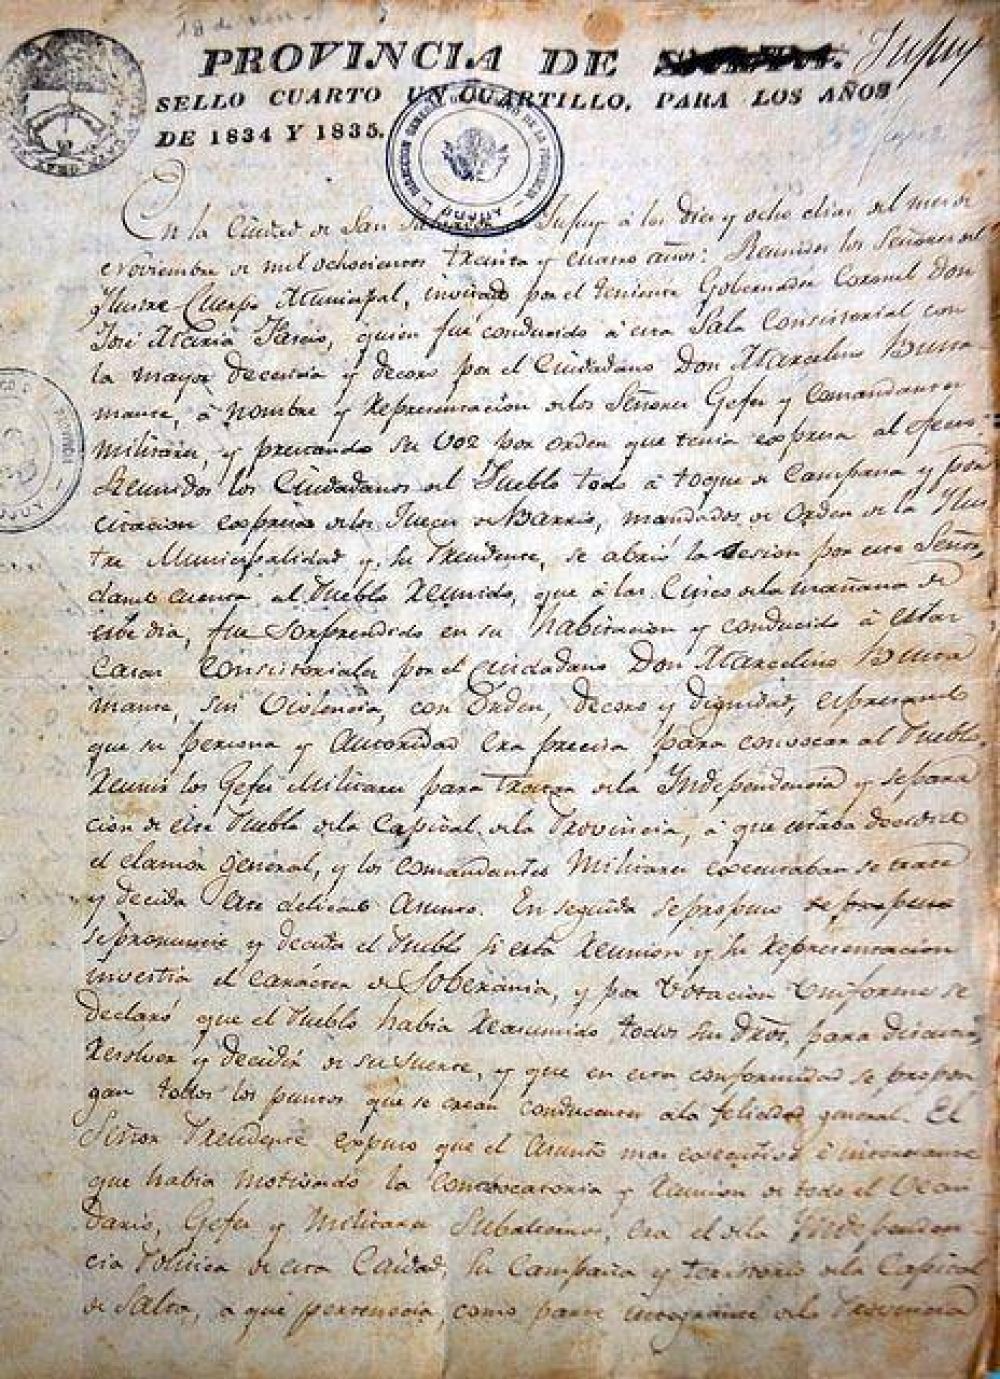 18 de Nov.
PROVINCIA DE SALTA. Jujuy
SELLO CUARTO UN CUARTILLO, PARA LOS AÑOS
DE 1834 Y 1835.
En la Ciudad de San Salvador Jujuy á los dies y ocho dias del mes de
Noviembre de mil ochocientos treinta y cuatro años: Reunidos los Señores del
Ilustre Cuerpo Municipal, invitado por el Teniente Gobernador Coronel Don
José Maria Fascio, quien fue conducido á esta Sala Consistorial con
la mayor decencia y decoro por el Ciudadano Don Marcelino Busta
mante, á nombre y representacion de los Señores Gefes y Comandantes
militares, y prestando su voz por orden que tenia expresa al efecto
Reunidos los Ciudadanos del Pueblo todo á toque de Campana y por
citacion expresa de los Jueces de Barrio, mandados de Orden de la Ilus
tre Municipalidad y su Presidente, se abrió la sesion por este Señor,
dando cuenta al Pueblo Reunido, que á las Cinco de la mañana de
este dia, fue sorprendido en su habitacion y conducido á estas
Casas Consistoriales por el ciudadano Don Marcelino Busta
mante, sin violencia, con Orden, decoro y dignidad, expresando
que su persona y autoridad era precisa para convocar al Pueblo,
Reunir los Gefes Militares para tratar de la Independencia y separa
cion de este Pueblo de la Capital de la Provincia, á que estaba decidido
el clamor general, y los comandantes Militares se trate
y decida este delicado asunto. En seguida se propuso se propuso
se pronuncie y decida el Pueblo si esta Reunion y su Representacion
investia el carácter de Soberania, y por votacion uniforme se
declaró que el Pueblo habia reasumido todos sus dros, para discutir,
Resolver y decidir de su suerte, y que en esta conformidad se propon
gan todos los puntos que se crean conducentes á la felicidad general. El
Señor Presidente expuso que el asunto mas executivo é interesante
que habia motivado la convocatoria y Reunion de todo el Vecin
dario, Gefes y Militares subalternos, era el de la Independen
cia Politica de esta Ciudad, su Campaña y territorio de la Capital
de Salta, á que pertenecia, como parte integrante de la Provincia